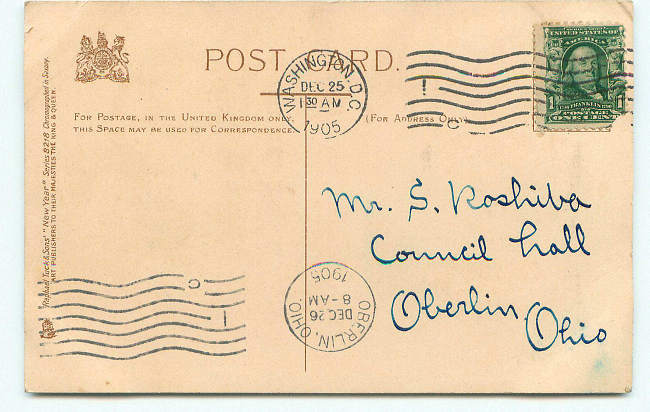 POST CARD.
FOR POSTAGE, IN THE UNITED KINGDOM ONLY,
THIS SPACE MAY BE USED FOR CORRESPONDENCE.
(FOR ADDRESS ONLY)
WASHINGTON, D.C.
DEC 25
1 30 AM
1905
C
UNITED STATES OF
AMERICA
FRANKLIN
1 1
POSTAGE
ONE CENT
Mr. S. Koshiba
Council Hall
Oberlin,
Ohio
OBERLIN, OHIO.
DEC 26
8-AM
1905
C
Raphael Tuck & Sons' "New Year" Series 8218 Chromographed in Saxony.
ART PUBLISHERS TO THEIR MAJESTIES THE KING & QUEEN.